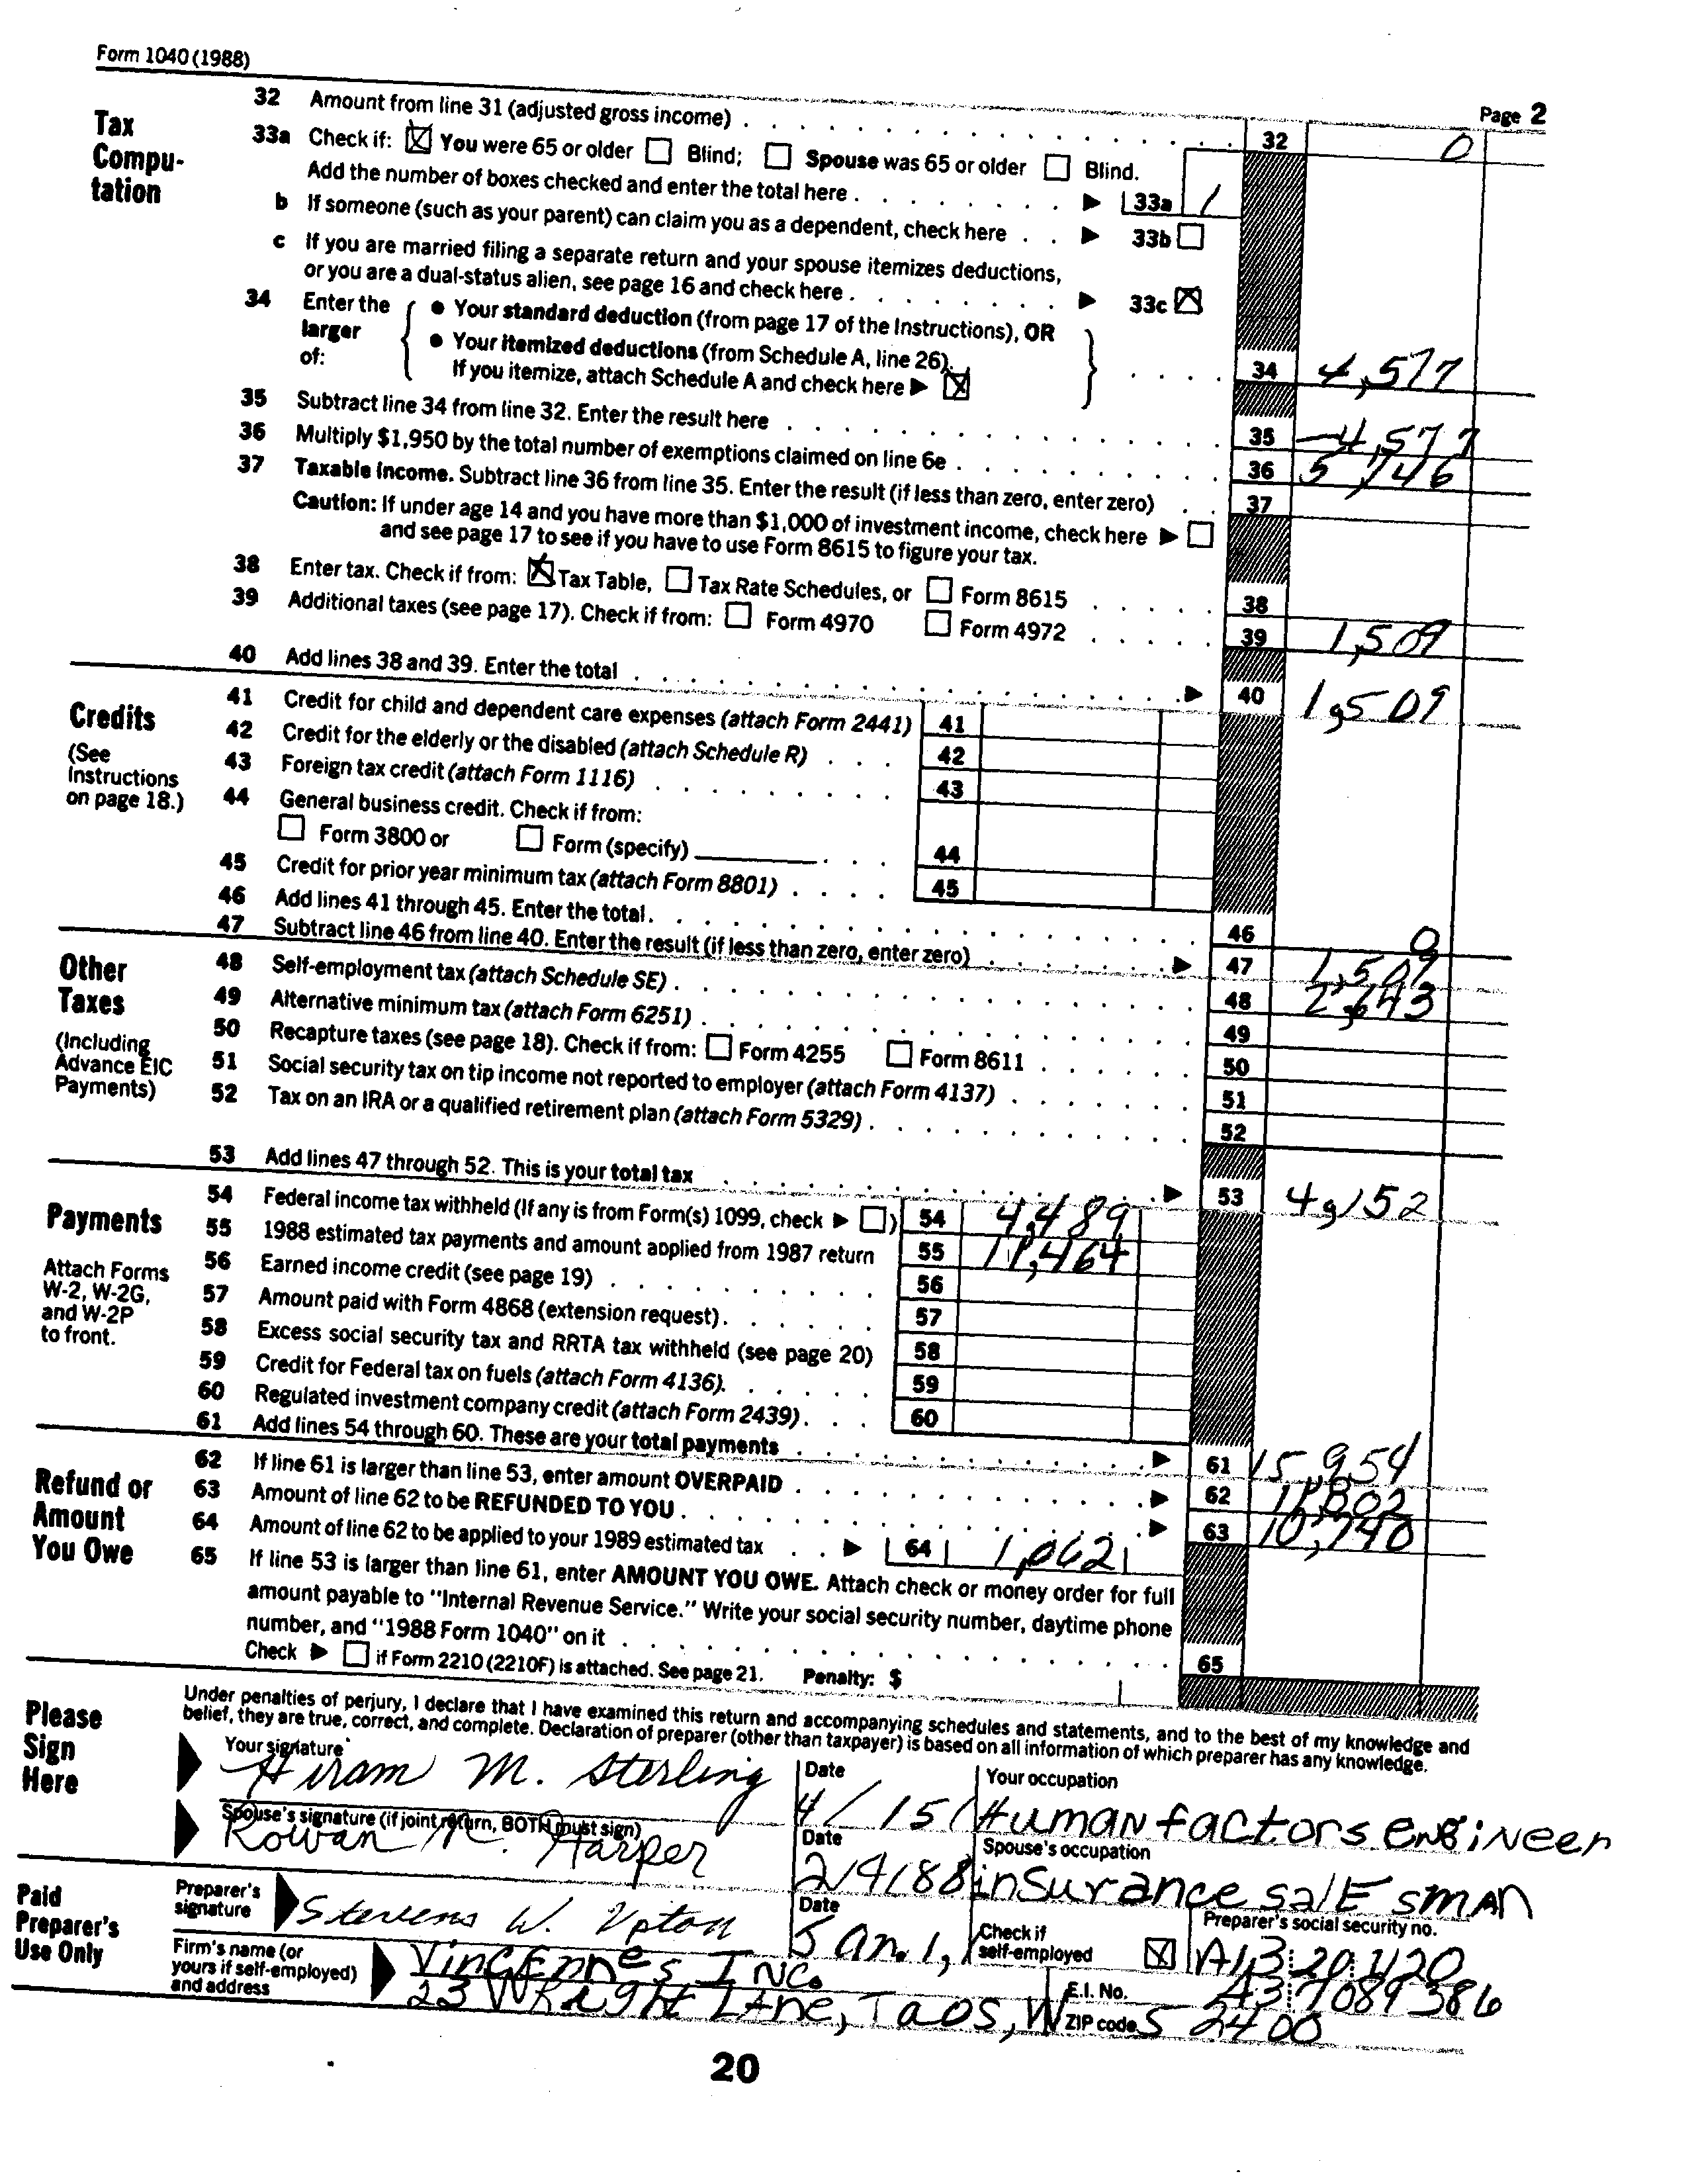 Form 1040 (1988)
Page 2
Tax Compu-tation
32 Amount from line 31 (adjusted gross income) 32 0
33a Check if: ☒ You were 65 or older ☐ Blind; ☐ Spouse was 65 or older ☐ Blind.
Add the number of boxes checked and enter the total here ▶ 33a 1
b If someone (such as your parent) can claim you as a dependent, check here ▶ 33b ☐
c If you are married filing a separate return and your spouse itemizes deductions,
or you are a dual-status alien, see page 16 and check here ▶ 33c ☒
34 Enter the larger of:
● Your standard deduction (from page 17 of the Instructions), OR
● Your itemized deductions (from Schedule A, line 26).
If you itemize, attach Schedule A and check here ▶ ☒ 34 4,577
35 Subtract line 34 from line 32. Enter the result here 35 -4,577
36 Multiply $1,950 by the total number of exemptions claimed on line 6e 36 5,746
37 Taxable income. Subtract line 36 from line 35. Enter the result (if less than zero, enter zero) 37
Caution: If under age 14 and you have more than $1,000 of investment income, check here ▶ ☐
and see page 17 to see if you have to use Form 8615 to figure your tax.
38 Enter tax. Check if from: ☒ Tax Table, ☐ Tax Rate Schedules, or ☐ Form 8615 38
39 Additional taxes (see page 17). Check if from: ☐ Form 4970 ☐ Form 4972 39 1,509
40 Add lines 38 and 39. Enter the total ▶ 40 1,509
Credits
(See Instructions on page 18.)
41 Credit for child and dependent care expenses (attach Form 2441) 41
42 Credit for the elderly or the disabled (attach Schedule R) 42
43 Foreign tax credit (attach Form 1116) 43
44 General business credit. Check if from:
☐ Form 3800 or ☐ Form (specify) 44
45 Credit for prior year minimum tax (attach Form 8801) 45
46 Add lines 41 through 45. Enter the total 46 0
47 Subtract line 46 from line 40. Enter the result (if less than zero, enter zero) ▶ 47 1,509
Other Taxes
(Including Advance EIC Payments)
48 Self-employment tax (attach Schedule SE) 48 2,643
49 Alternative minimum tax (attach Form 6251) 49
50 Recapture taxes (see page 18). Check if from: ☐ Form 4255 ☐ Form 8611 50
51 Social security tax on tip income not reported to employer (attach Form 4137) 51
52 Tax on an IRA or a qualified retirement plan (attach Form 5329) 52
53 Add lines 47 through 52. This is your total tax ▶ 53 4,152
Payments
Attach Forms W-2, W-2G, and W-2P to front.
54 Federal income tax withheld (If any is from Form(s) 1099, check ▶ ☐) 54 4,489
55 1988 estimated tax payments and amount applied from 1987 return 55 11,464
56 Earned income credit (see page 19) 56
57 Amount paid with Form 4868 (extension request) 57
58 Excess social security tax and RRTA tax withheld (see page 20) 58
59 Credit for Federal tax on fuels (attach Form 4136) 59
60 Regulated investment company credit (attach Form 2439) 60
61 Add lines 54 through 60. These are your total payments ▶ 61 15,954
Refund or Amount You Owe
62 If line 61 is larger than line 53, enter amount OVERPAID ▶ 62 11,802
63 Amount of line 62 to be REFUNDED TO YOU ▶ 63 10,740
64 Amount of line 62 to be applied to your 1989 estimated tax ▶ 64 1,062
65 If line 53 is larger than line 61, enter AMOUNT YOU OWE. Attach check or money order for full
amount payable to "Internal Revenue Service." Write your social security number, daytime phone
number, and "1988 Form 1040" on it 65
Check ▶ ☐ if Form 2210 (2210F) is attached. See page 21. Penalty: $
Please Sign Here
Under penalties of perjury, I declare that I have examined this return and accompanying schedules and statements, and to the best of my knowledge and
belief, they are true, correct, and complete. Declaration of preparer (other than taxpayer) is based on all information of which preparer has any knowledge.
Your signature Hiram M. Sterling Date 4/15/ Your occupation Human factors engineer
Spouse's signature (if joint return, BOTH must sign) Rowan Harper Date 2/4/88 Spouse's occupation insurance salEsman
Paid Preparer's Use Only
Preparer's signature Stevens W. Upton Date Jan. 1, Check if self-employed ☒ Preparer's social security no. A13 20 4120
Firm's name (or yours if self-employed) and address VincEnnes Inc. E.I. No. A3 7089386
23 WRight Lane, Taos, W ZIP code 52400
20